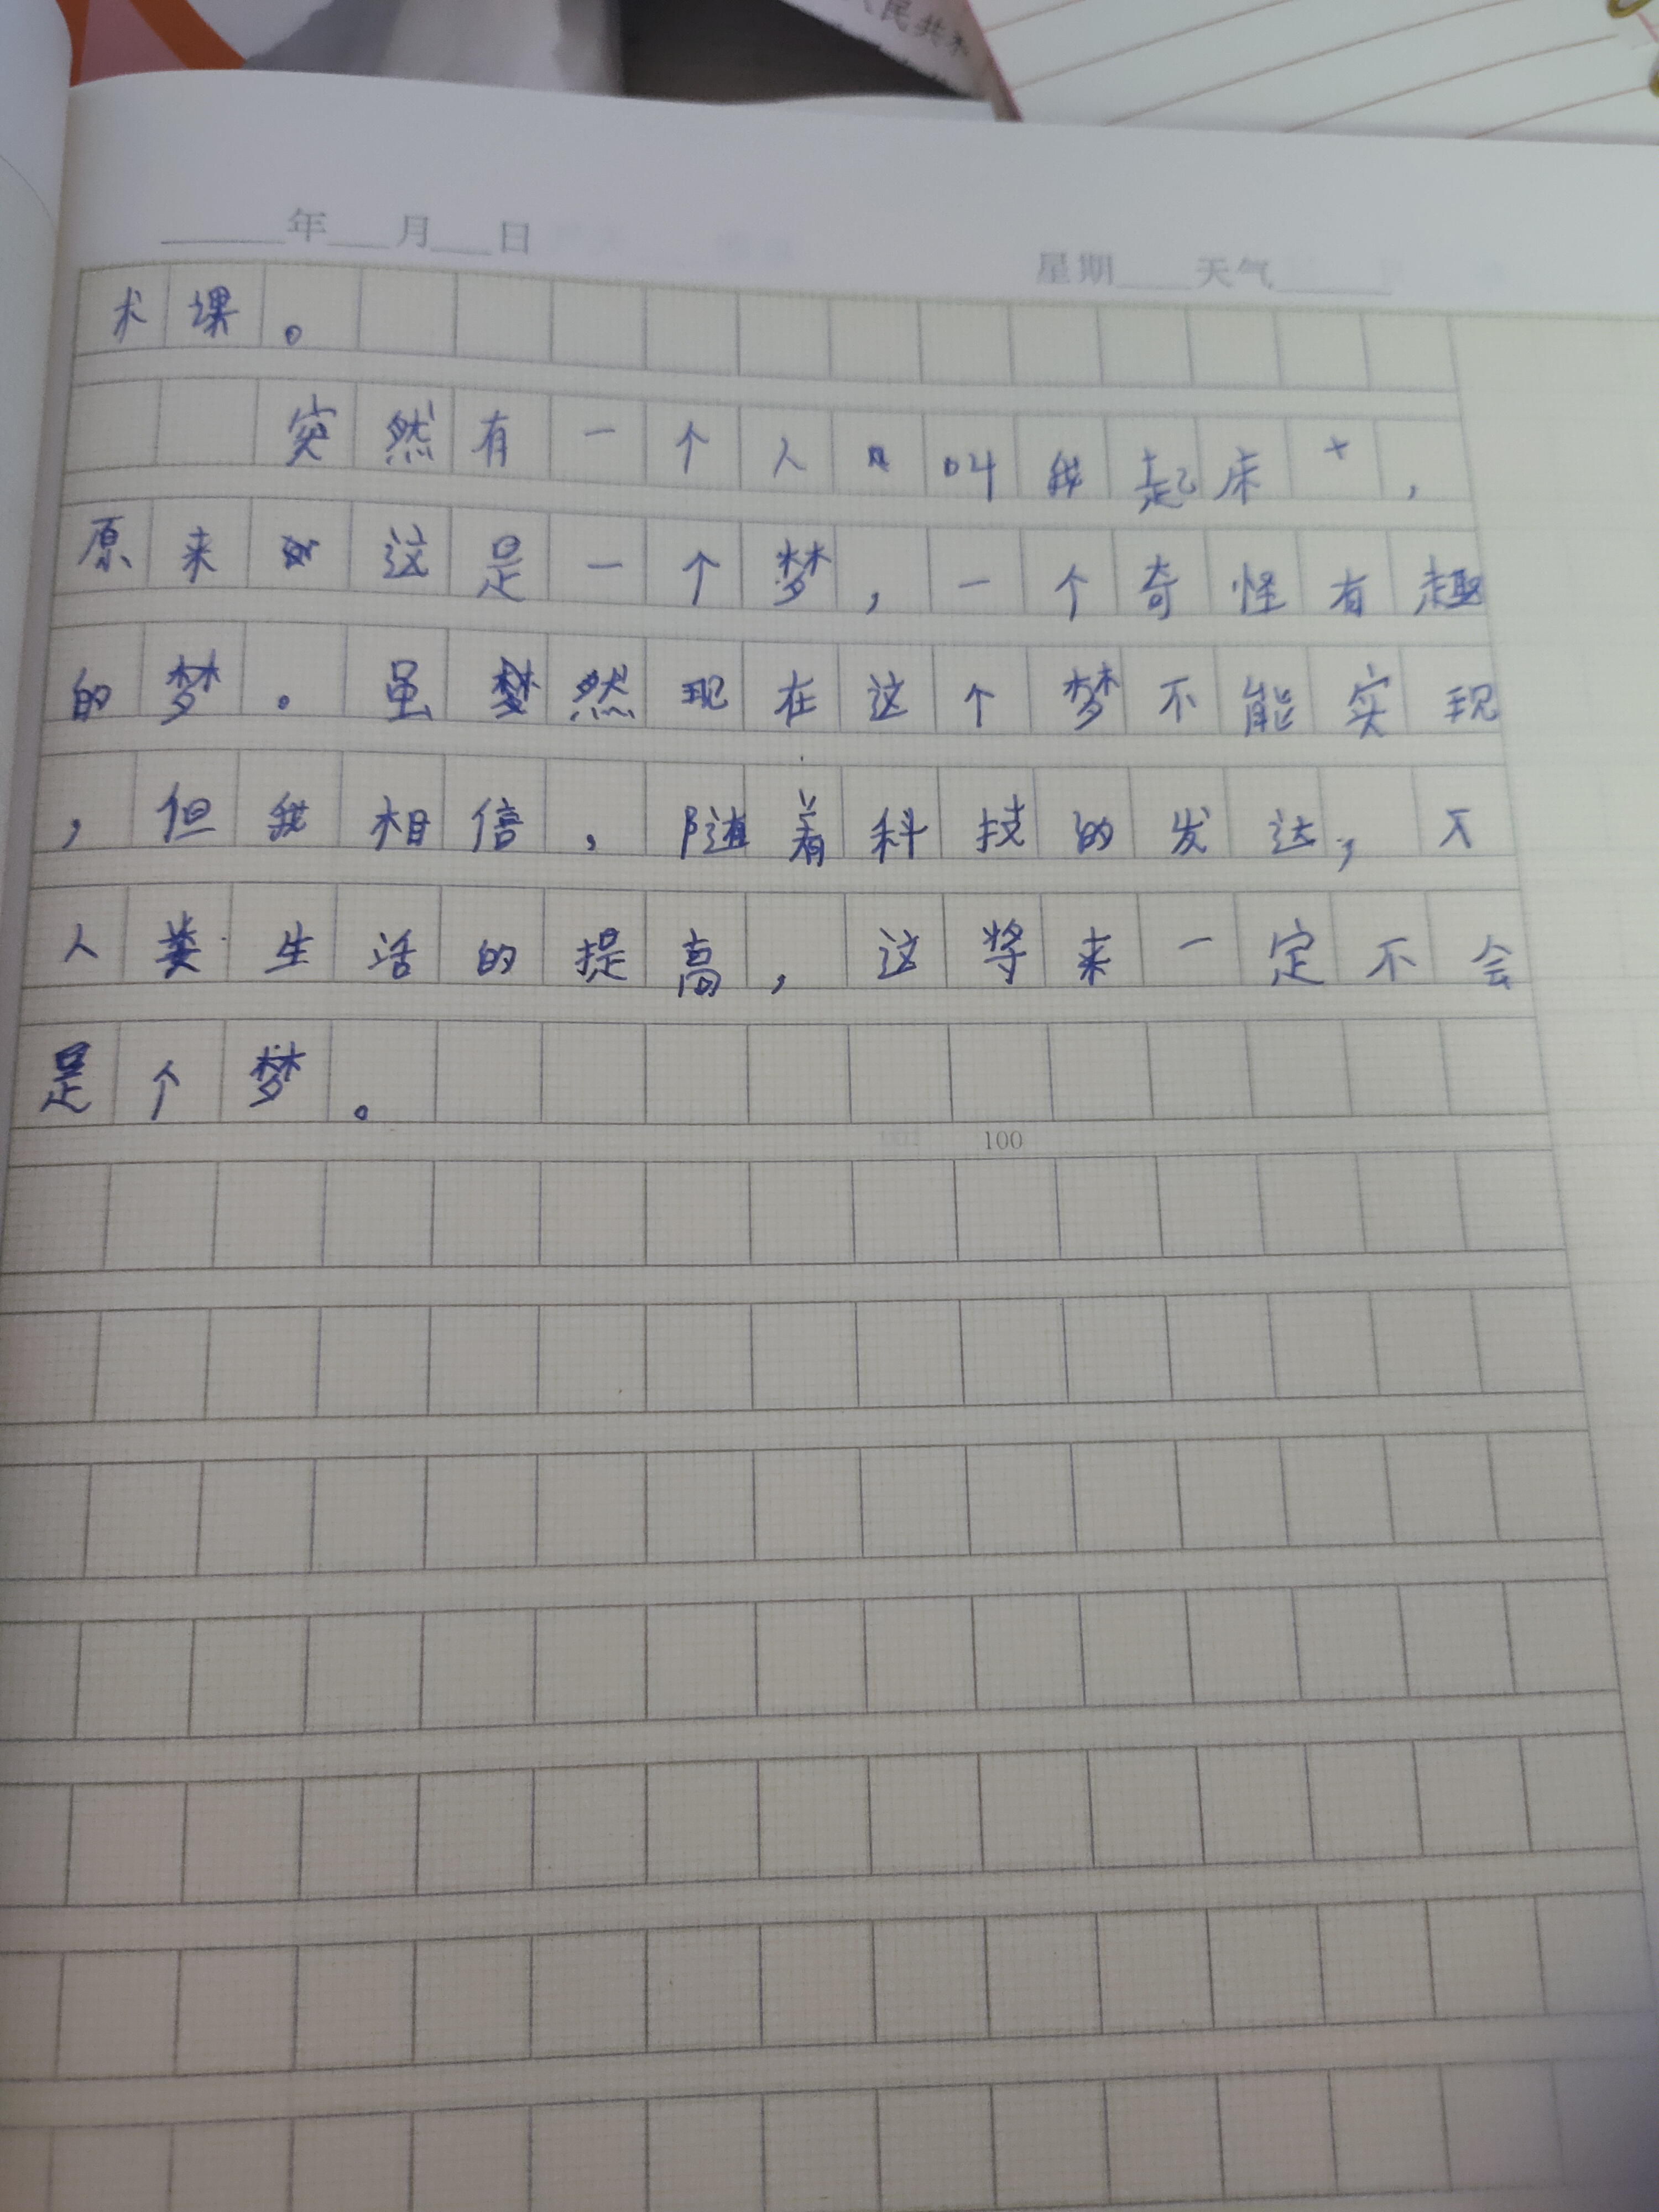 人民共和
年 月 日 星期 天气
术课。
突然有一个人叫我起床,
原来这是一个梦,一个奇怪有趣
的梦。虽然现在这个梦不能实现
,但我相信,随着科技的发达,
人类生活的提高,这将来一定不会
是个梦。
100